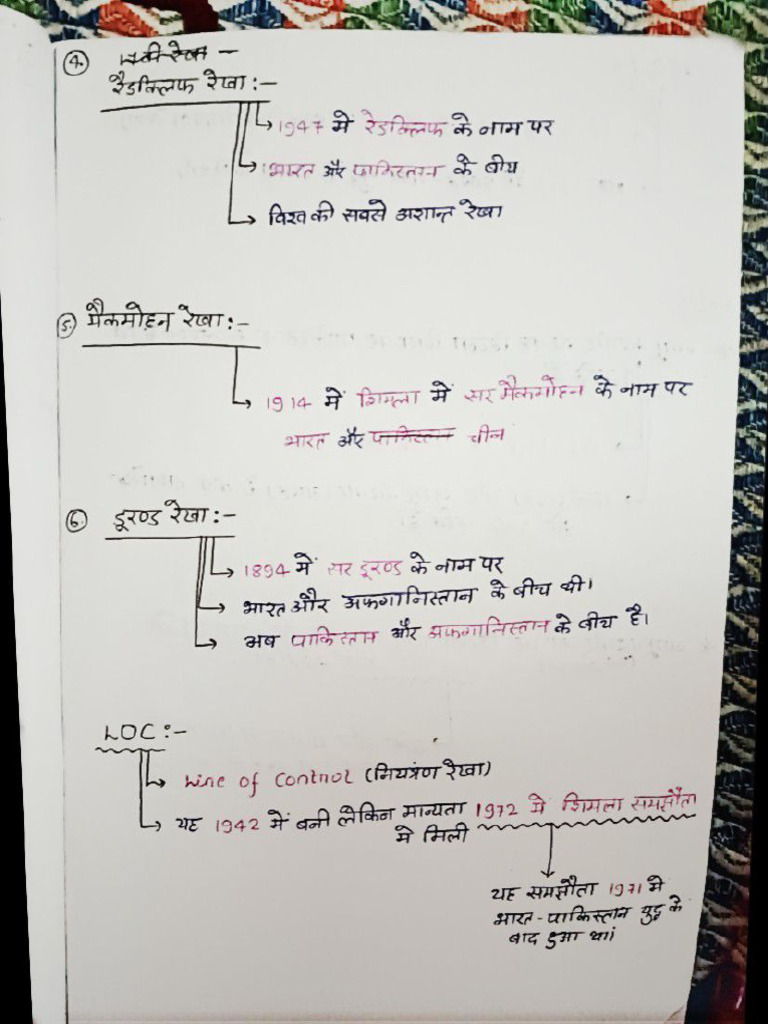 ④ 
रैडक्लिफ रेखा :-
→ 1947 में रेडक्लिफ के नाम पर
→ भारत और पाकिस्तान के बीच
→ विश्व की सबसे अशान्त रेखा
⑤ मैकमोहन रेखा :-
→ 1914 में शिमला में सर मैकमोहन के नाम पर
भारत और पाकिस्तान चीन
⑥ डूरण्ड रेखा :-
→ 1894 में सर डूरण्ड के नाम पर
→ भारत और अफगानिस्तान के बीच थी।
→ अब पाकिस्तान और अफगानिस्तान के बीच है।
LOC :-
→ Line of Control (नियत्रंण रेखा)
→ यह 1942 में बनी लेकिन मान्यता 1972 में शिमला समझौता
मे मिली
यह समझौता 1971 मे
भारत - पाकिस्तान युद्ध के
बाद हुआ था।